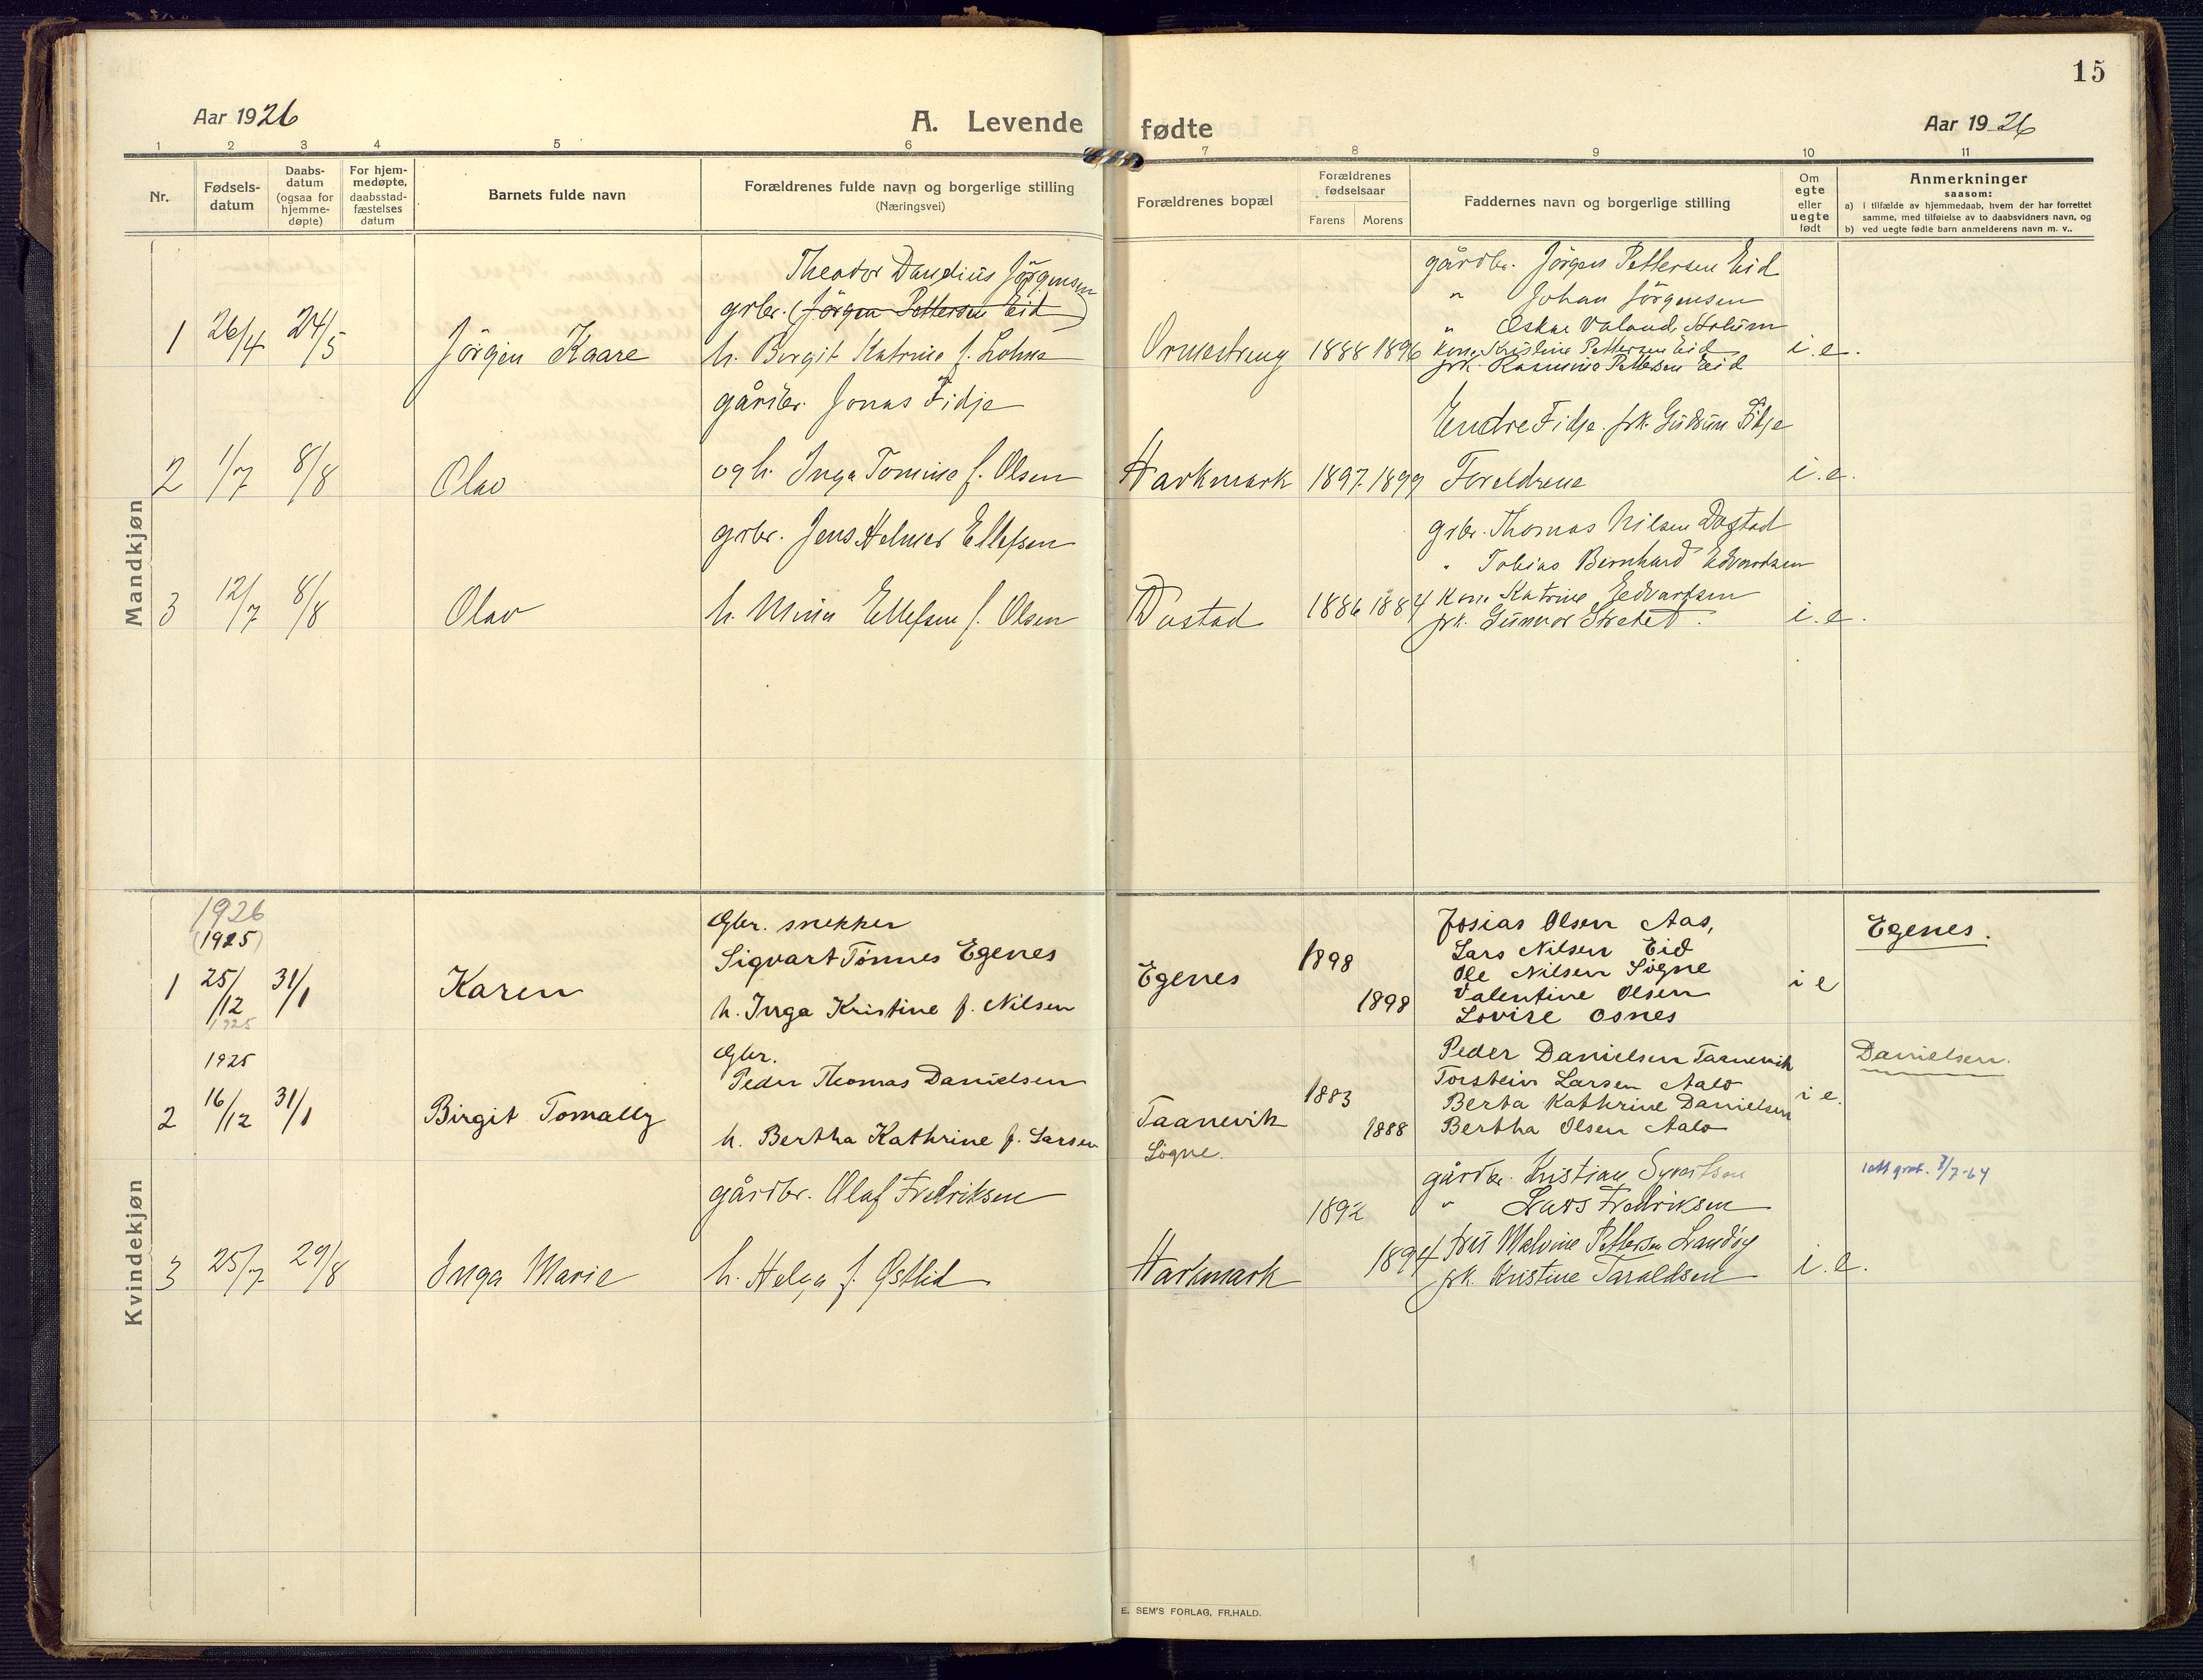 15
Aar 1926
A. Levende fødte
Aar 1926
1 2 3 4 5 6 7 8 9 10 11
Nr.
Fødsels-
datum
Daabs-
datum
(ogsaa for
hjemme-
døpte)
For hjem-
medøpte,
daabsstad-
fæstelses
datum
Barnets fulde navn
Forældrenes fulde navn og borgerlige stilling
(Næringsvei)
Forældrenes bopæl
Forældrenes
fødselsaar
Farens Morens
Faddernes navn og borgerlige stilling
Om
egte
eller
uegte
født
Anmerkninger
saasom:
a) i tilfælde av hjemmedaab, hvem der har forrettet
samme, med tilføielse av to daabsvidners navn, og
b) ved uegte fødte barn anmelderens navn m. v..
Mandkjøn
1 26/4 24/5 Jörgen Kaare
Theodor Jörgensen
grbr. (Jörgen Pettersen Eid)
h. Borgit Katrine f. Lohne
Ormestreng 1888 1896
gårdbr. Jörgen Pettersen Eid
" Johan Jörgensen
" Oskar Valand, Holum
kone Kristine Pettersen Eid
frk. Rasmine Pettersen Eid
i.e.
2 1/7 8/8 Olav
gårdbr. Jonas Fidje
og h. Inga Tomine f. Olsen
Harkmark 1897 1899
Endre Fidje. frk. Gudrun Fidje
Foreldrene
i.e.
3 12/7 8/8 Olav
grbr. Jens Helmer Ellefsen
h. Mina Ellefsen f. Olsen
Døstad 1886 1884
grbr. Thomas Nilsen Døstad
" Tobias Bernhard Edvardsen
Kone Katrine Edvardsen
frk. Gunvor
i.e.
Kvindekjøn
1926
(1925)
1 25/12 31/1 Karen
1925
Gbr. snekker
Sigvart Tønnes Egenes
h. Inga Kristine f. Nilsen
Egenes 1898
1898
Josias Olsen Aas,
Lars Nilsen Eid
Ole Nilsen Søgne
Valentine Olsen
Lovise Osnes
i e
Egenes.
1925
2 16/12 31/1 Birgit Tomally
Gbr.
Peder Thomas Danielsen
h. Bertha Kathrine f. Larsen
Taanevik
Søgne.
1883
1888
Peder Danielsen Taanevik
Torstein Larsen Aalo
Berta Kathrine Danielsen
Bertha Olsen Aalo
i e.
Danielsen.
3 25/7 29/8 Inga Marie
gårdbr. Olaf Fredriksen
h. Helga f. Østlid
Harkmark
1892
1894
gårdbr. Kristian Syvertsen
" Lars Fredriksen
fru Malvine Pettersen Landøy
frk. Kristine Taraldsen
i.e.
7/7-64
E. SEM'S FORLAG, FR.HALD.